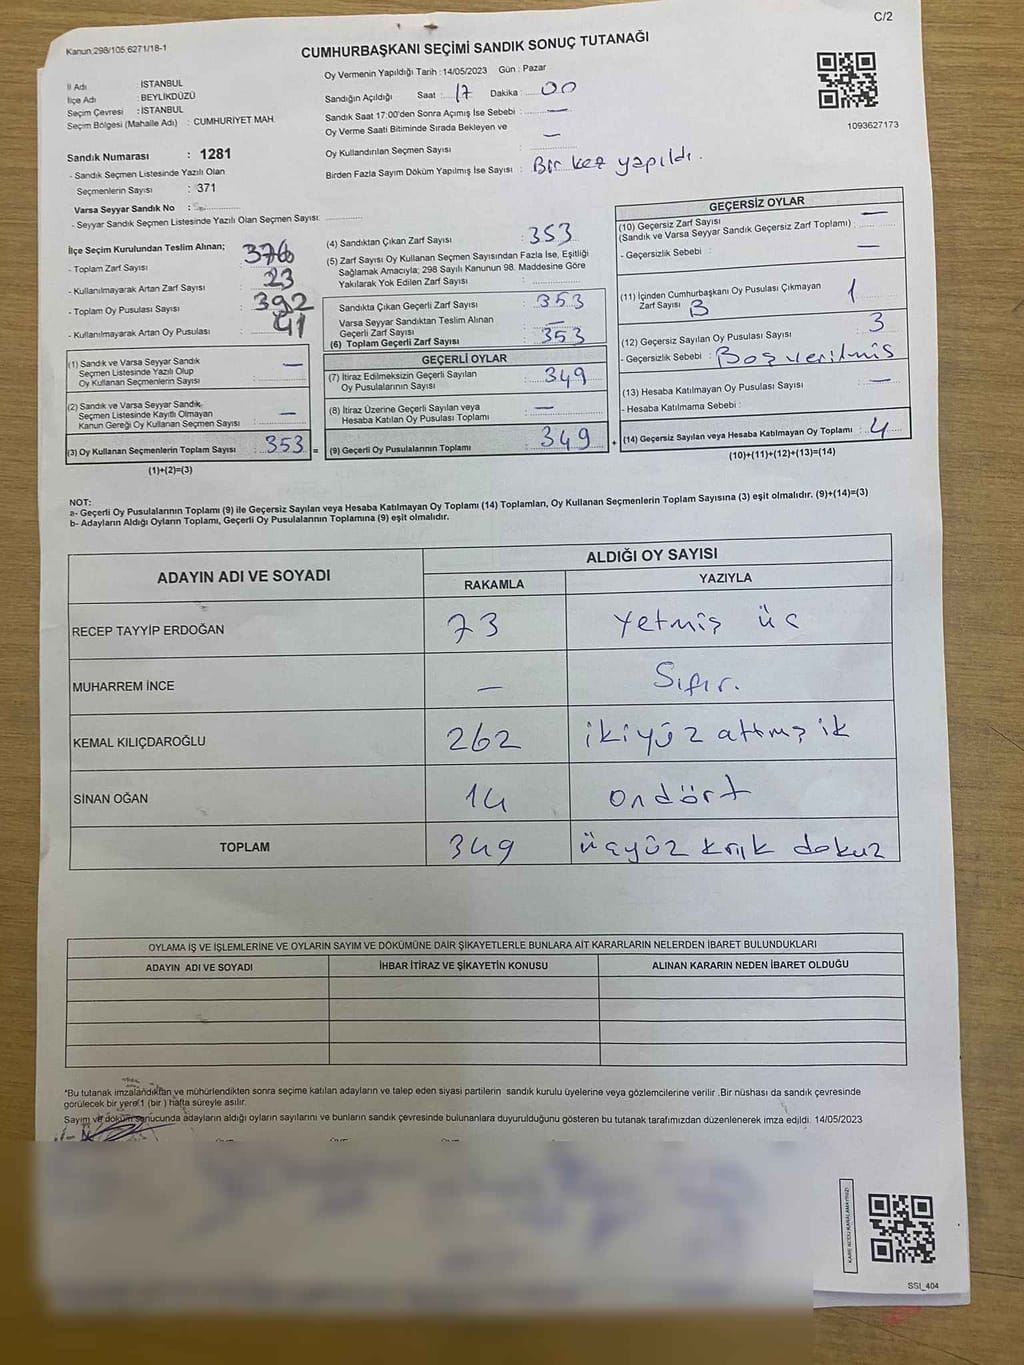 C/2
Kanun 298/105 6271/18-1
CUMHURBAŞKANI SEÇİMİ SANDIK SONUÇ TUTANAĞI
İl Adı : İSTANBUL
İlçe Adı : BEYLİKDÜZÜ
Seçim Çevresi : İSTANBUL
Seçim Bölgesi (Mahalle Adı) : CUMHURİYET MAH.
Sandık Numarası : 1281
- Sandık Seçmen Listesinde Yazılı Olan
Seçmenlerin Sayısı : 371
Varsa Seyyar Sandık No :
- Seyyar Sandık Seçmen Listesinde Yazılı Olan Seçmen Sayısı:
Oy Vermenin Yapıldığı Tarih : 14/05/2023 Gün : Pazar
Sandığın Açıldığı Saat : 17 Dakika : 00
Sandık Saat 17:00'den Sonra Açımış İse Sebebi : —
Oy Verme Saati Bitiminde Sırada Bekleyen ve
Oy Kullandırılan Seçmen Sayısı : —
Birden Fazla Sayım Döküm Yapılmış İse Sayısı : Bir kez yapıldı.
1093627173
İlçe Seçim Kurulundan Teslim Alınan;
- Toplam Zarf Sayısı : 376
- Kullanılmayarak Artan Zarf Sayısı : 23
- Toplam Oy Pusulası Sayısı : 392
- Kullanılmayarak Artan Oy Pusulası : 41
(1) Sandık ve Varsa Seyyar Sandık
Seçmen Listesinde Yazılı Olup
Oy Kullanan Seçmenlerin Sayısı : —
(2) Sandık ve Varsa Seyyar Sandık
Seçmen Listesinde Kayıtlı Olmayan
Kanun Gereği Oy Kullanan Seçmen Sayısı : —
(3) Oy Kullanan Seçmenlerin Toplam Sayısı : 353 =
(1)+(2)=(3)
(4) Sandıktan Çıkan Zarf Sayısı : 353
(5) Zarf Sayısı Oy Kullanan Seçmen Sayısından Fazla İse, Eşitliği
Sağlamak Amacıyla; 298 Sayılı Kanunun 98. Maddesine Göre
Yakılarak Yok Edilen Zarf Sayısı :
Sandıkta Çıkan Geçerli Zarf Sayısı : 353
Varsa Seyyar Sandıktan Teslim Alınan
Geçerli Zarf Sayısı : —
(6) Toplam Geçerli Zarf Sayısı : 353
GEÇERLİ OYLAR
(7) İtiraz Edilmeksizin Geçerli Sayılan
Oy Pusulalarının Sayısı : 349
(8) İtiraz Üzerine Geçerli Sayılan veya
Hesaba Katılan Oy Pusulası Toplamı : —
(9) Geçerli Oy Pusulalarının Toplamı : 349 +
GEÇERSİZ OYLAR
(10) Geçersiz Zarf Sayısı
(Sandık ve Varsa Seyyar Sandık Geçersiz Zarf Toplamı) : —
- Geçersizlik Sebebi : —
(11) İçinden Cumhurbaşkanı Oy Pusulası Çıkmayan
Zarf Sayısı : 1
(12) Geçersiz Sayılan Oy Pusulası Sayısı : 3
- Geçersizlik Sebebi : Boş verilmiş
(13) Hesaba Katılmayan Oy Pusulası Sayısı : —
- Hesaba Katılmama Sebebi :
(14) Geçersiz Sayılan veya Hesaba Katılmayan Oy Toplamı : 4
(10)+(11)+(12)+(13)=(14)
NOT:
a- Geçerli Oy Pusulalarının Toplamı (9) ile Geçersiz Sayılan veya Hesaba Katılmayan Oy Toplamı (14) Toplamları, Oy Kullanan Seçmenlerin Toplam Sayısına (3) eşit olmalıdır. (9)+(14)=(3)
b- Adayların Aldığı Oyların Toplamı, Geçerli Oy Pusulalarının Toplamına (9) eşit olmalıdır.
ADAYIN ADI VE SOYADI
ALDIĞI OY SAYISI
RAKAMLA YAZIYLA
RECEP TAYYİP ERDOĞAN 73 Yetmiş üç
MUHARREM İNCE — Sıfır.
KEMAL KILIÇDAROĞLU 262 ikiyüz altmış ik
SİNAN OĞAN 14 ondört
TOPLAM 349 üçyüz kırk dokuz
OYLAMA İŞ VE İŞLEMLERİNE VE OYLARIN SAYIM VE DÖKÜMÜNE DAİR ŞİKAYETLERLE BUNLARA AİT KARARLARIN NELERDEN İBARET BULUNDUKLARI
ADAYIN ADI VE SOYADI İHBAR İTİRAZ VE ŞİKAYETİN KONUSU ALINAN KARARIN NEDEN İBARET OLDUĞU
*Bu tutanak imzalandıktan ve mühürlendikten sonra seçime katılan adayların ve talep eden siyasi partilerin sandık kurulu üyelerine veya gözlemcilerine verilir .Bir nüshası da sandık çevresinde
görülecek bir yere 1 (bir ) hafta süreyle asılır.
Sayım ve döküm sonucunda adayların aldığı oyların sayılarını ve bunların sandık çevresinde bulunanlara duyurulduğunu gösteren bu tutanak tarafımızdan düzenlenerek imza edildi. 14/05/2023
KARE KODU KARALAMAYINIZ!
SSI_404